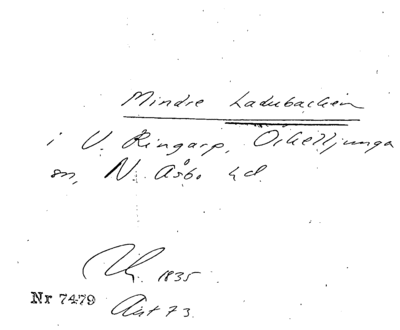 Mindre Ladubacken
i V. Ringarp, Örkelljunga
sn, N. Åsbo hd.
1835
Nr 7479
Akt 73.